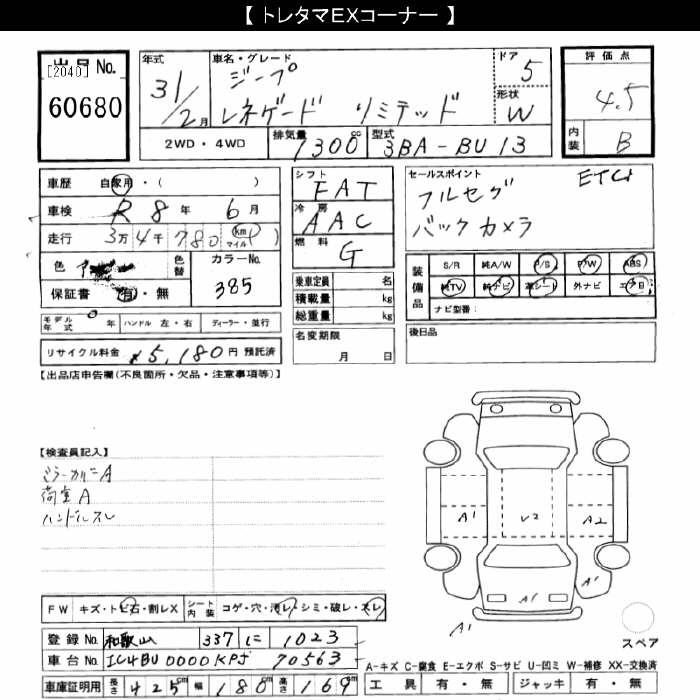 【 トレタマEXコーナー 】
出品 No.
[2040]
60680
年式
31/2月
車名・グレード
ジープ
レネゲード リミテッド
ドア
5
形状
W
2WD・4WD
排気量
1300cc
型式
3BA-BU13
評価点
4.5
内装
B
車歴 自家用・( )
車検 R 8 年 6 月
走行 3万 4千 780 (km マイル)
色
色替
カラーNo.
385
保証書 有・無
モデル年式 年 ハンドル 左・右 ディーラー・並行
リサイクル料金 ¥5,180円 預託済
シフト
FAT
冷房
AAC
燃料
G
乗車定員 名
積載量 kg
総重量 kg
名変期限
月 日
セールスポイント
ETC
フルセグ
バックカメラ
装備品
S/R 純A/W P/S P/W ABS
純TV 純ナビ 革シート 外ナビ エアB
ナビ型番:
後日品
【出品店申告欄(不良箇所・欠品・注意事項等)】
【検査員記入】
ミラーカバーA
荷室A
ハンドルスレ
A1
V2
A2
A1
A1
A1
スペア
FW キズ・トビ石・割レX
シート内装 コゲ・穴・汚レ・シミ・破レ・スレ
登録 No. 和歌山 337 に 1023
車台 No. 1C4BU0000KPJ 70563
A-キズ C-腐食 E-エクボ S-サビ U-凹ミ W-補修 XX-交換済
車庫証明用 長さ 425cm 幅 180cm 高さ 169cm
工具 有・無 ジャッキ 有・無